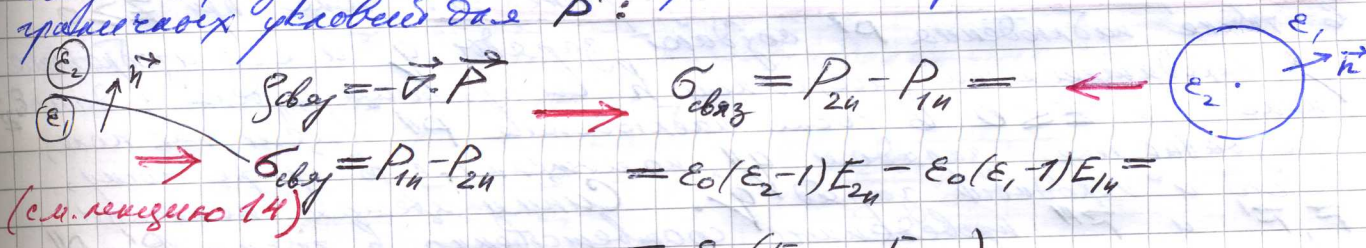 граничных условий для P⃗:
ε₂ n⃗ ρсвяз = -∇⃗·P⃗ → σсвяз = P₂ₙ - P₁ₙ = ← ε₂ ε₁ n⃗
ε₁ → σсвяз = P₁ₙ - P₂ₙ = ε₀(ε₂-1)E₂ₙ - ε₀(ε₁-1)E₁ₙ =
(см. лекцию 14)